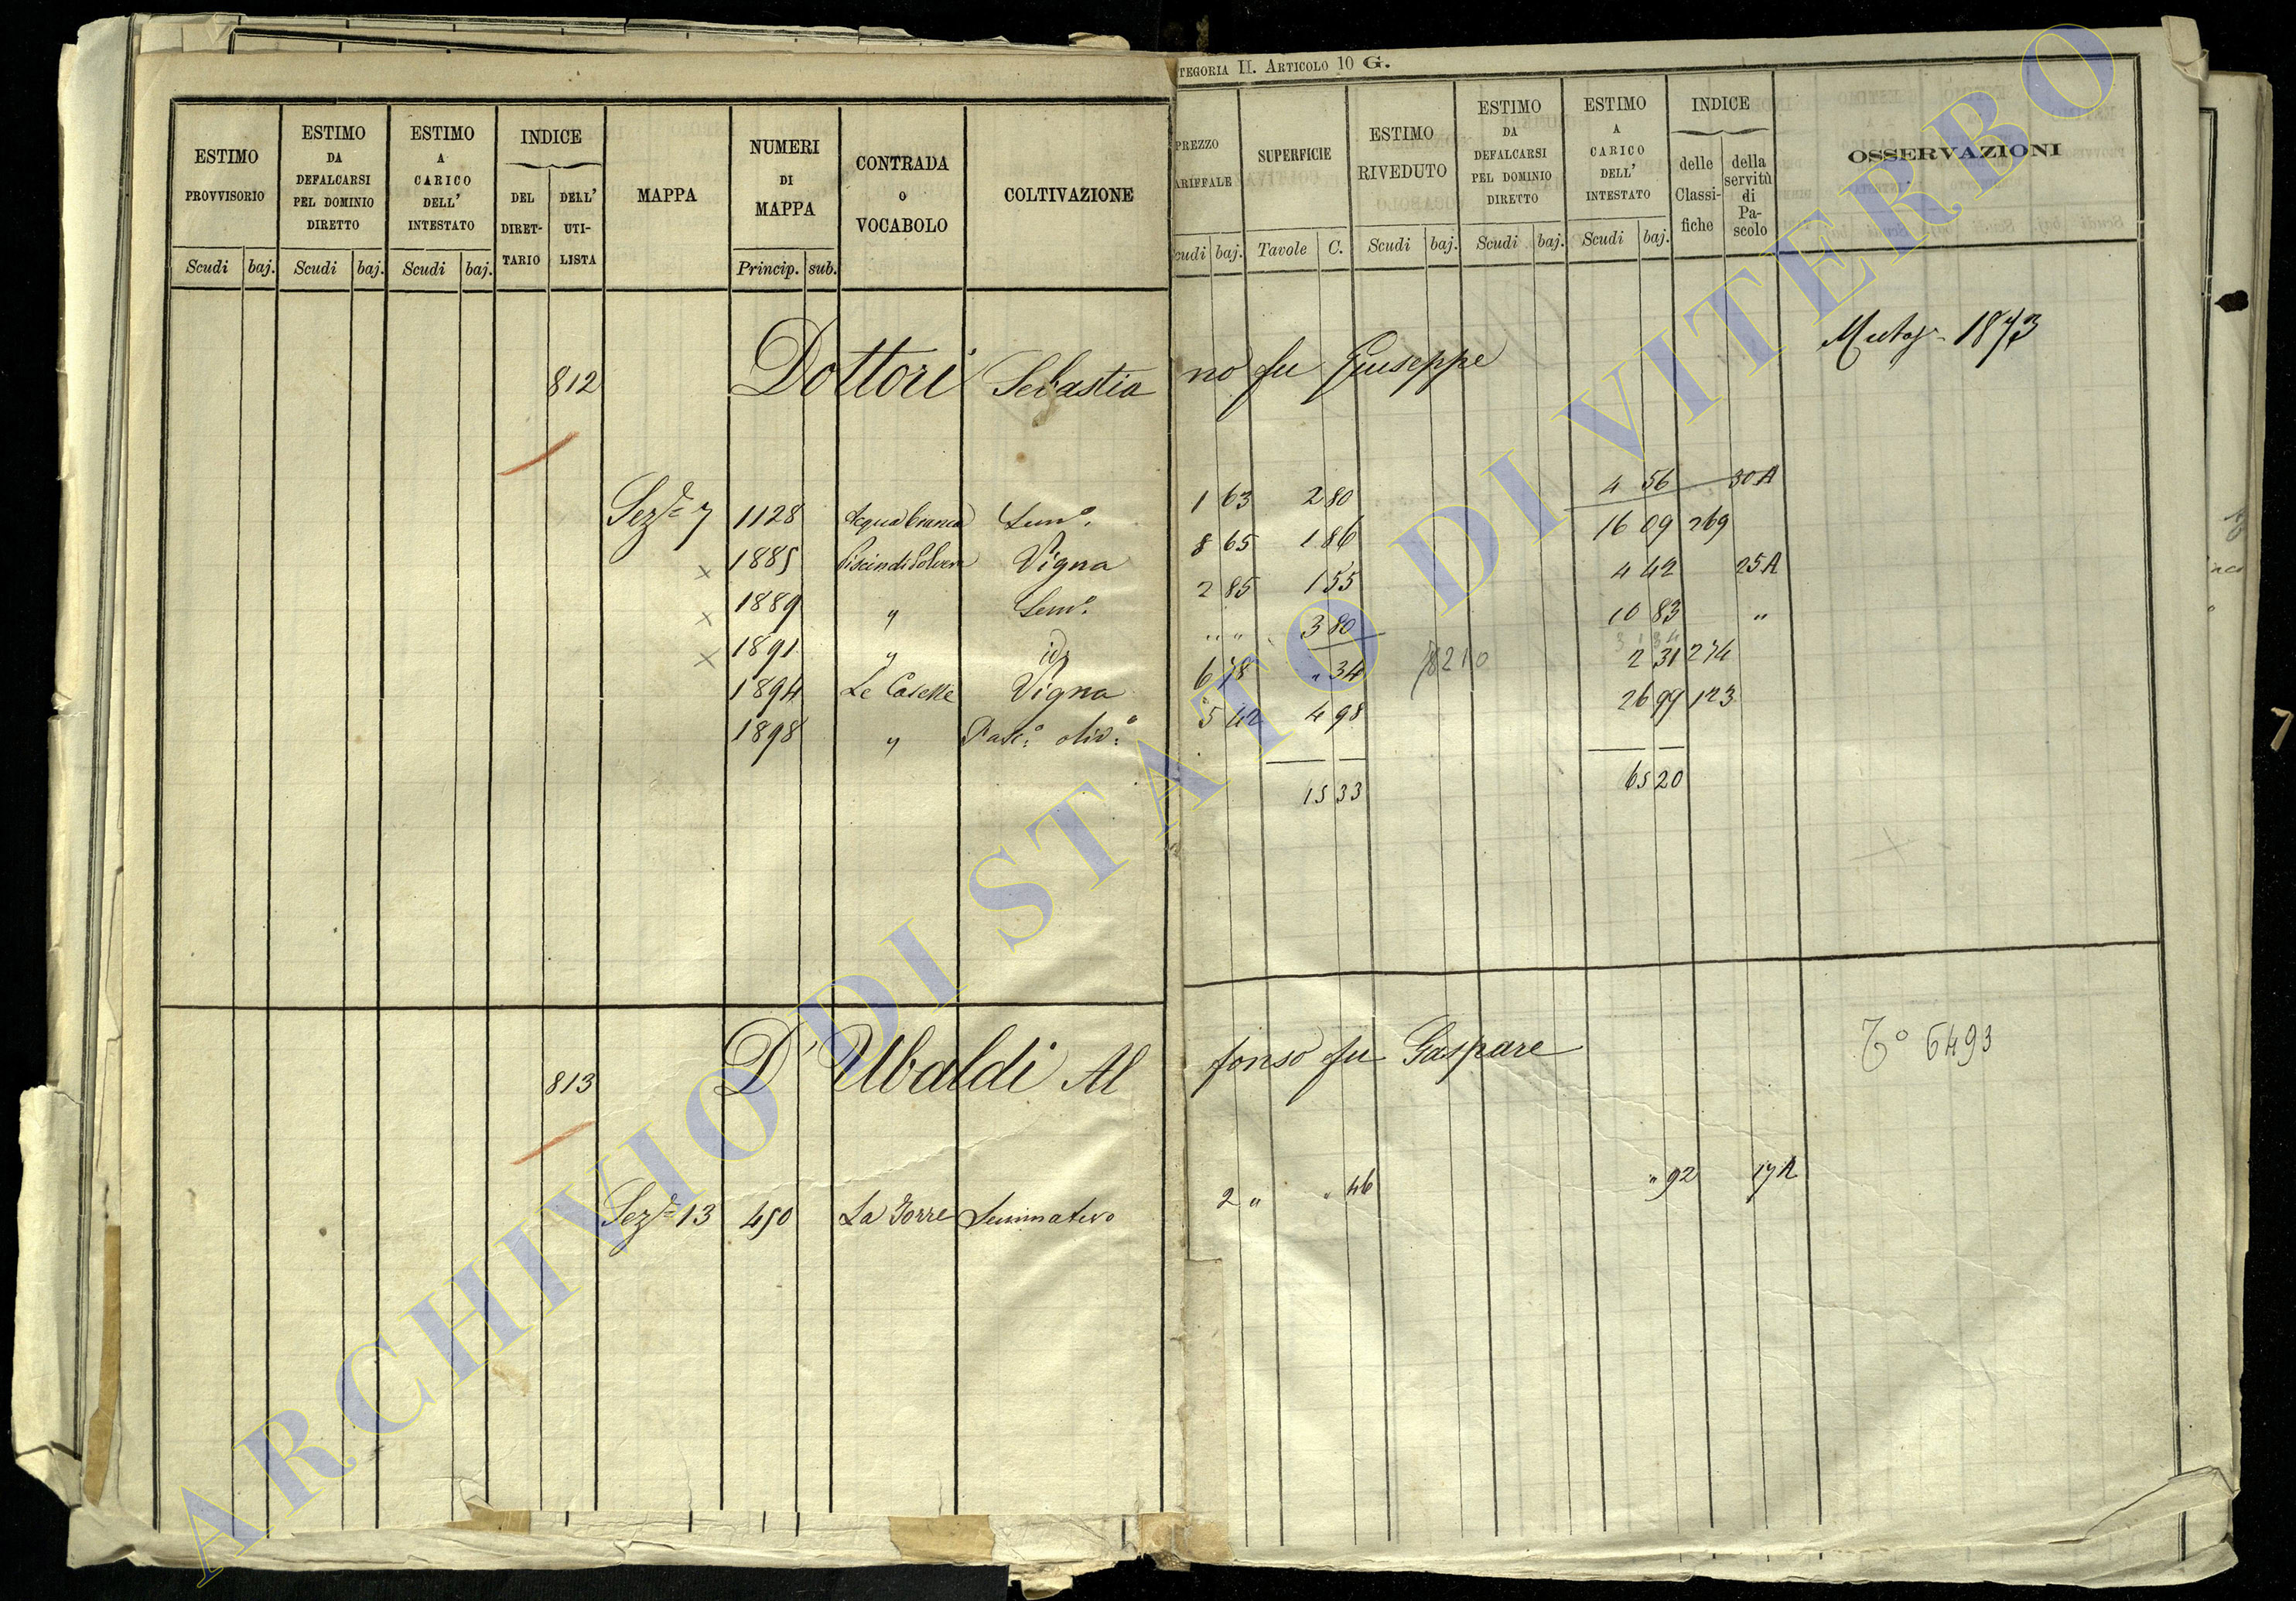 TEGORIA II. ARTICOLO 10 G.
ESTIMO PROVVISORIO
ESTIMO DA DEFALCARSI PEL DOMINIO DIRETTO
ESTIMO A CARICO DELL' INTESTATO
INDICE
DEL DIRET- TARIO
DELL' UTI- LISTA
MAPPA
NUMERI DI MAPPA
CONTRADA o VOCABOLO
COLTIVAZIONE
PREZZO ARIFFALE
SUPERFICIE
ESTIMO RIVEDUTO
ESTIMO DA DEFALCARSI PEL DOMINIO DIRETTO
ESTIMO A CARICO DELL' INTESTATO
INDICE
delle Classi- fiche
della servitù di Pa- scolo
OSSERVAZIONI
Scudi baj. Scudi baj. Scudi baj. Princip. sub.
cudi baj. Tavole C. Scudi baj. Scudi baj. Scudi baj.
812 Dottori Sebastia no fu Giuseppe 1873
Sez.e 7 1128 Acquabianca Sem.o 1 63 2 80 4 56 30A
1885 Vigna 8 65 1 86 16 09 269
1889 " Sem.o 2 85 1 55 4 42 25A
1891 " id. " " 3 80 10 83 "
1894 Le Caselle Vigna 6 78 " 34 8210 2 31 274
1898 " Pasc.o oliv.o 5 42 4 98 26 99 123
15 33 65 20
813 D'Ubaldi Al fonso fu Gaspare 6493
Sez.e 13 450 La Torre Seminativo 2 " " 46 " 92 17A
ARCHIVIO DI STATO DI VITERBO